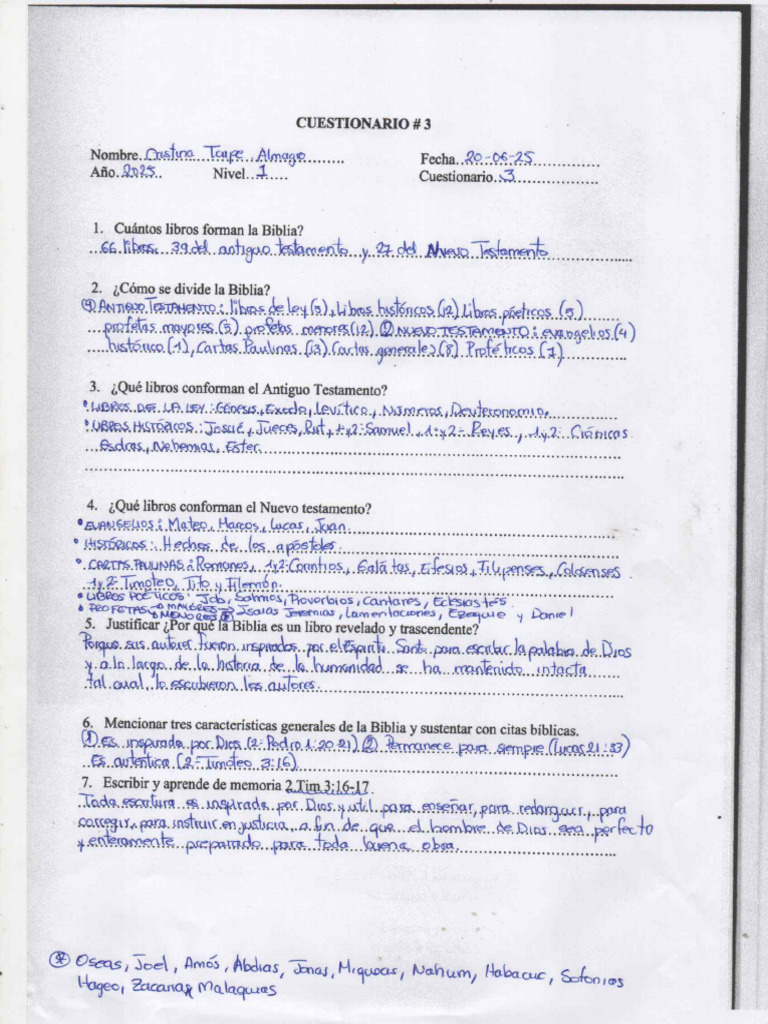 CUESTIONARIO # 3
Nombre. Cristina Taipe Almago
Fecha. 20-06-25
Año. 2025 Nivel. 1
Cuestionario. 3
1. Cuántos libros forman la Biblia?
66 libros. 39 del antiguo testamento y 27 del Nuevo Testamento
2. ¿Cómo se divide la Biblia?
① ANTIGUO TESTAMENTO: libros de ley (5), Libros históricos (12) Libros póeticos (5)
profetas mayores (5) profetas menores (12) ② NUEVO TESTAMENTO: evangelios (4)
histórico (1), Cartas Paulinas (13) Cartas generales (8) Proféticos (1)
3. ¿Qué libros conforman el Antiguo Testamento?
• LIBROS DE LA LEY: Génesis, Exodo, Levítico, Números, Deuteronomio.
• LIBROS HISTÓRICOS: Josué, Jueces, Rut, 1 y 2: Samuel, 1 y 2: Reyes, 1 y 2: Crónicas
Esdras, Nehemias, Ester.
4. ¿Qué libros conforman el Nuevo testamento?
• EVANGELIOS: Mateo, Marcos, Lucas, Juan.
• HISTÓRICOS: Hechos de los apóstoles.
• CARTAS PAULINAS: Romanos, 1 y 2: Corintios, Galátas, Efesios, Filipenses, Colosenses
1 y 2: Timoteo, Tito y Filemón.
• LIBROS POÉTICOS: Job, Salmos, Proverbios, Cantares, Eclesiastés
• PROFETAS → MAYORES → Isaias Jeremias, Lamentaciones, Ezequie y Daniel
→ MENORES
5. Justificar ¿Por qué la Biblia es un libro revelado y trascendente?
Porque sus autores fueron inspirados por el Espiritu Santo para escribir la palabra de Dios
y a lo largo de la historia de la humanidad se ha mantenido intacta
tal cual lo escubieron los autores.
6. Mencionar tres características generales de la Biblia y sustentar con citas bíblicas.
① Es inspirada por Dios (2: Pedro 1:20-21) ② Permanece para siempre (Lucas 21:33)
Es autentica (2: Timoteo 3:16).
7. Escribir y aprende de memoria 2 Tim 3:16-17
Toda escritura es inspirada por Dios y util para enseñar, para redarguir, para
corregir, para instruir en justicia, a fin de que el hombre de Dios sea perfecto
y enteramente preparado para toda buena obra.
Oseas, Joel, Amós, Abdias, Jonas, Miqueas, Nahum, Habacuc, Sofonias
Hageo, Zacarias Malaquias